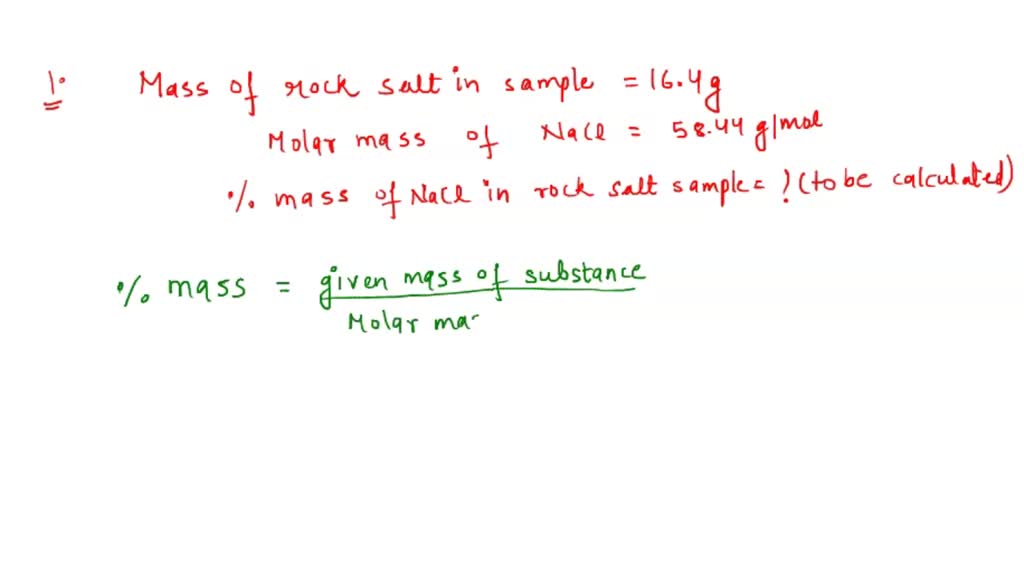 1. Mass of rock salt in sample = 16.4g
Molar mass of NaCl = 58.44 g/mol
% mass of NaCl in rock salt sample = ? (to be calculated)
% mass = given mass of substance
Molar ma